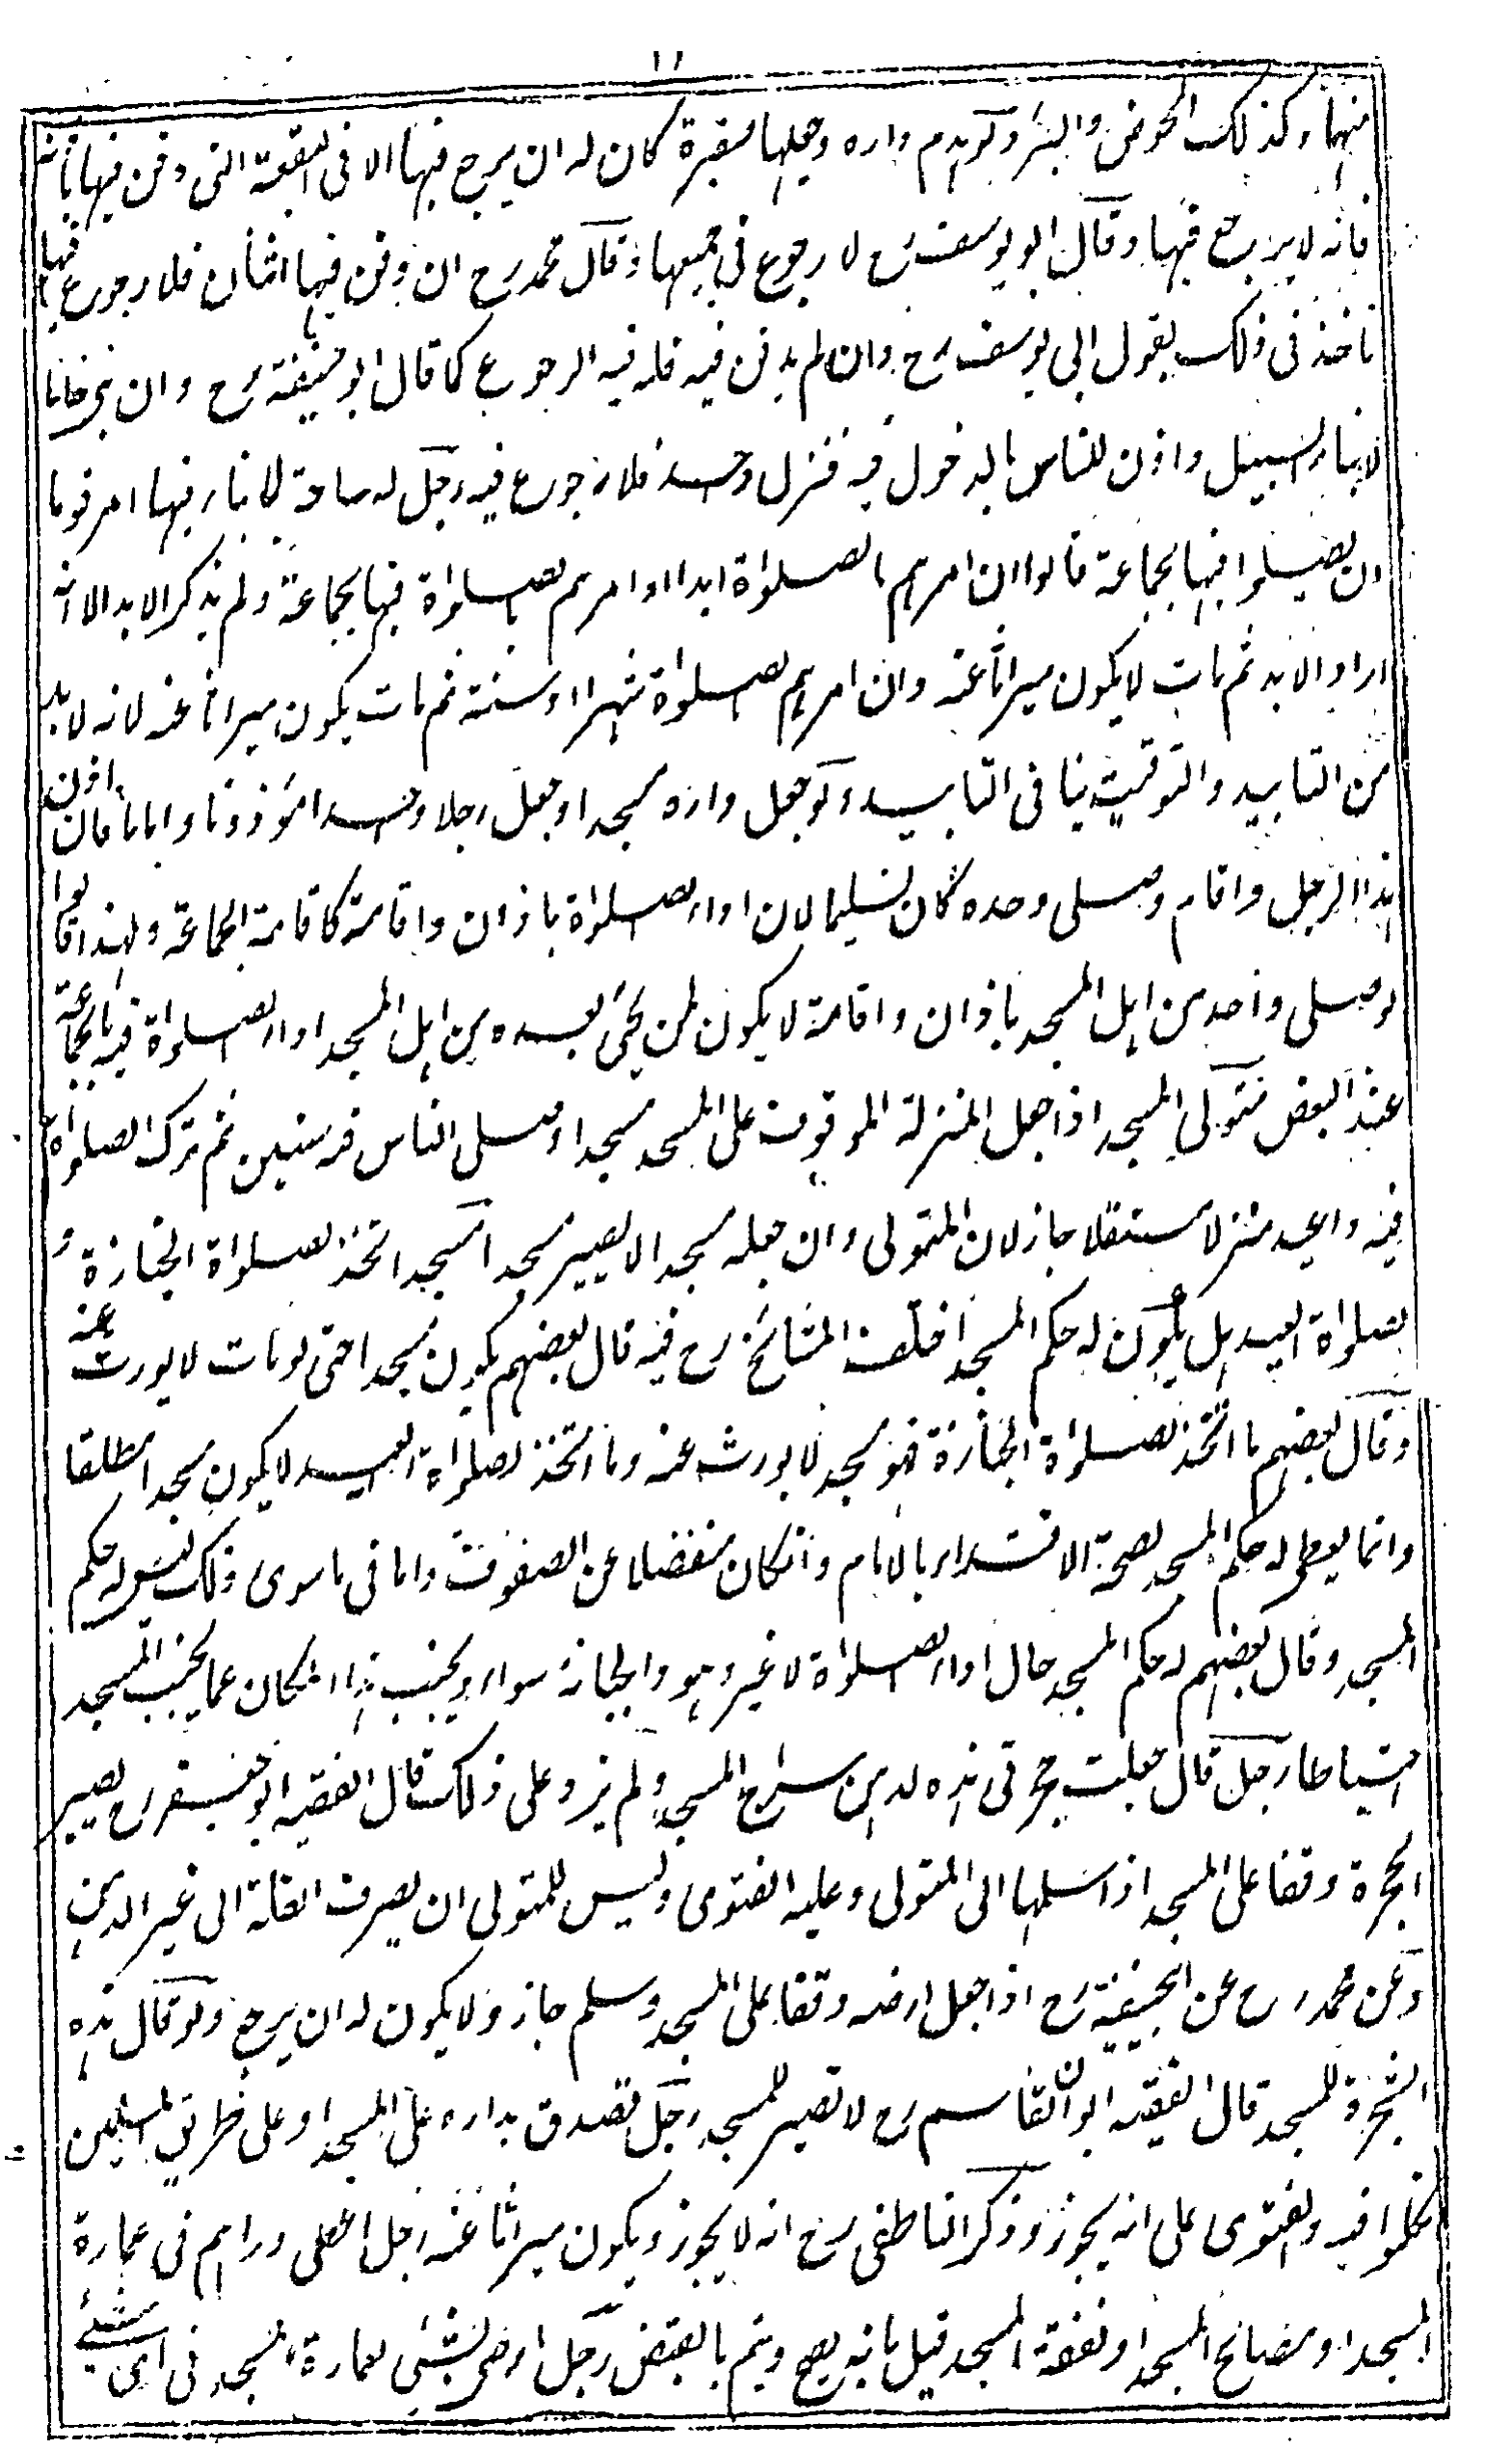 ١١
منها وكذلك الحوض والبئر ولو هدم داره وجعلها مقبرة كان له ان يرجع فيها الا فى البقعة التى دفن فيها
فانه لا يرجع فيها وقال ابو يوسف رح لا رجوع فى جميعها وقال محمد رح ان دفن فيها اثنان فلا رجوع فيها
ناخذ فى ذلك بقول ابى يوسف رح وان لم يدفن فيه فله فيه الرجوع كما قال ابو حنيفة رح وان بنى خانا
لابناء السبيل واذن للناس بالدخول فيه فنزل واحد فلا رجوع فيه رجل له ساحة لا بناء فيها امر قوما
ان يصلوا فيها بجماعة قالوا ان امرهم بالصلواة ابدا او امرهم بالصلواة فيها بجماعة ولم يذكر الابد الا انه
اراد الابد ثم مات لا يكون ميراثا عنه وان امرهم بالصلواة شهرا او سنة ثم مات يكون ميراثا عنه لانه لا بد
من التابيد والتوقيت ينافى التابيد ولو جعل داره مسجدا وجعل رجلا واحدا مؤذنا واماما فان اذن
هذا الرجل واقام وصلى وحده كان تسليما لان اداء الصلواة باذان واقامة كاقامة الجماعة ولهذا قالوا
لو صلى واحد من اهل المسجد باذان واقامة لا يكون لمن يجئ بعده من اهل المسجد اداء الصلواة فيه بالجماعة
عند البعض متولى المسجد اذا جعل المنزلة الموقوف على المسجد مسجدا وصلى الناس فيه سنين ثم ترك الصلواة
فيه واعيد منزلا مستقلا جاز لان المتولى وان جعله مسجدا لا يصير مسجدا مسجد اتخذ لصلواة الجنازة و
لصلواة العيد هل يكون له حكم المسجد اختلف المشائخ رح فيه قال بعضهم يكون مسجدا حتى لو مات لا يورث عنه
وقال بعضهم ما اتخذ لصلواة الجنازة فهو مسجد لا يورث عنه وما اتخذ لصلواة العيد لا يكون مسجدا مطلقا
وانما يعطى له حكم المسجد لصحة الاقتداء بالامام وانكان منفصلا عن الصفوف واما فى ما سوى ذلك ليس له حكم
المسجد وقال بعضهم له حكم المسجد حال اداء الصلواة لا غير وهو والجبانة سواء ويجنب هذا المكان عما يجنب المسجد
احتياطا رجل قال جعلت حجرتى هذه لدهن سراج المسجد ولم يزد على ذلك قال الفقيه ابو جعفر رح يصير
الحجرة وقفا على المسجد اذا سلمها الى المتولى وعليه الفتوى وليس للمتولى ان يصرف الغلة الى غير الدهن
وعن محمد رح عن ابيحنيفة رح اذا جعل ارضه وقفا على المسجد وسلم جاز ولا يكون له ان يرجع ولو قال هذه
الشجرة للمسجد قال الفقيه ابو القاسم رح لا تصير للمسجد رجل تصدق بداره على المسجد او على طريق المسلمين
تكلموا فيه والفتوى على انه يجوز وذكر الناطفى رح انه لا يجوز ويكون ميراثا عنه رجل اعطى دراهم فى عمارة
المسجد او مصالح المسجد او نفقة المسجد قيل بانه يصح ويتم بالقبض رجل اوصى بشئ لعمارة المسجد فى اى شئ